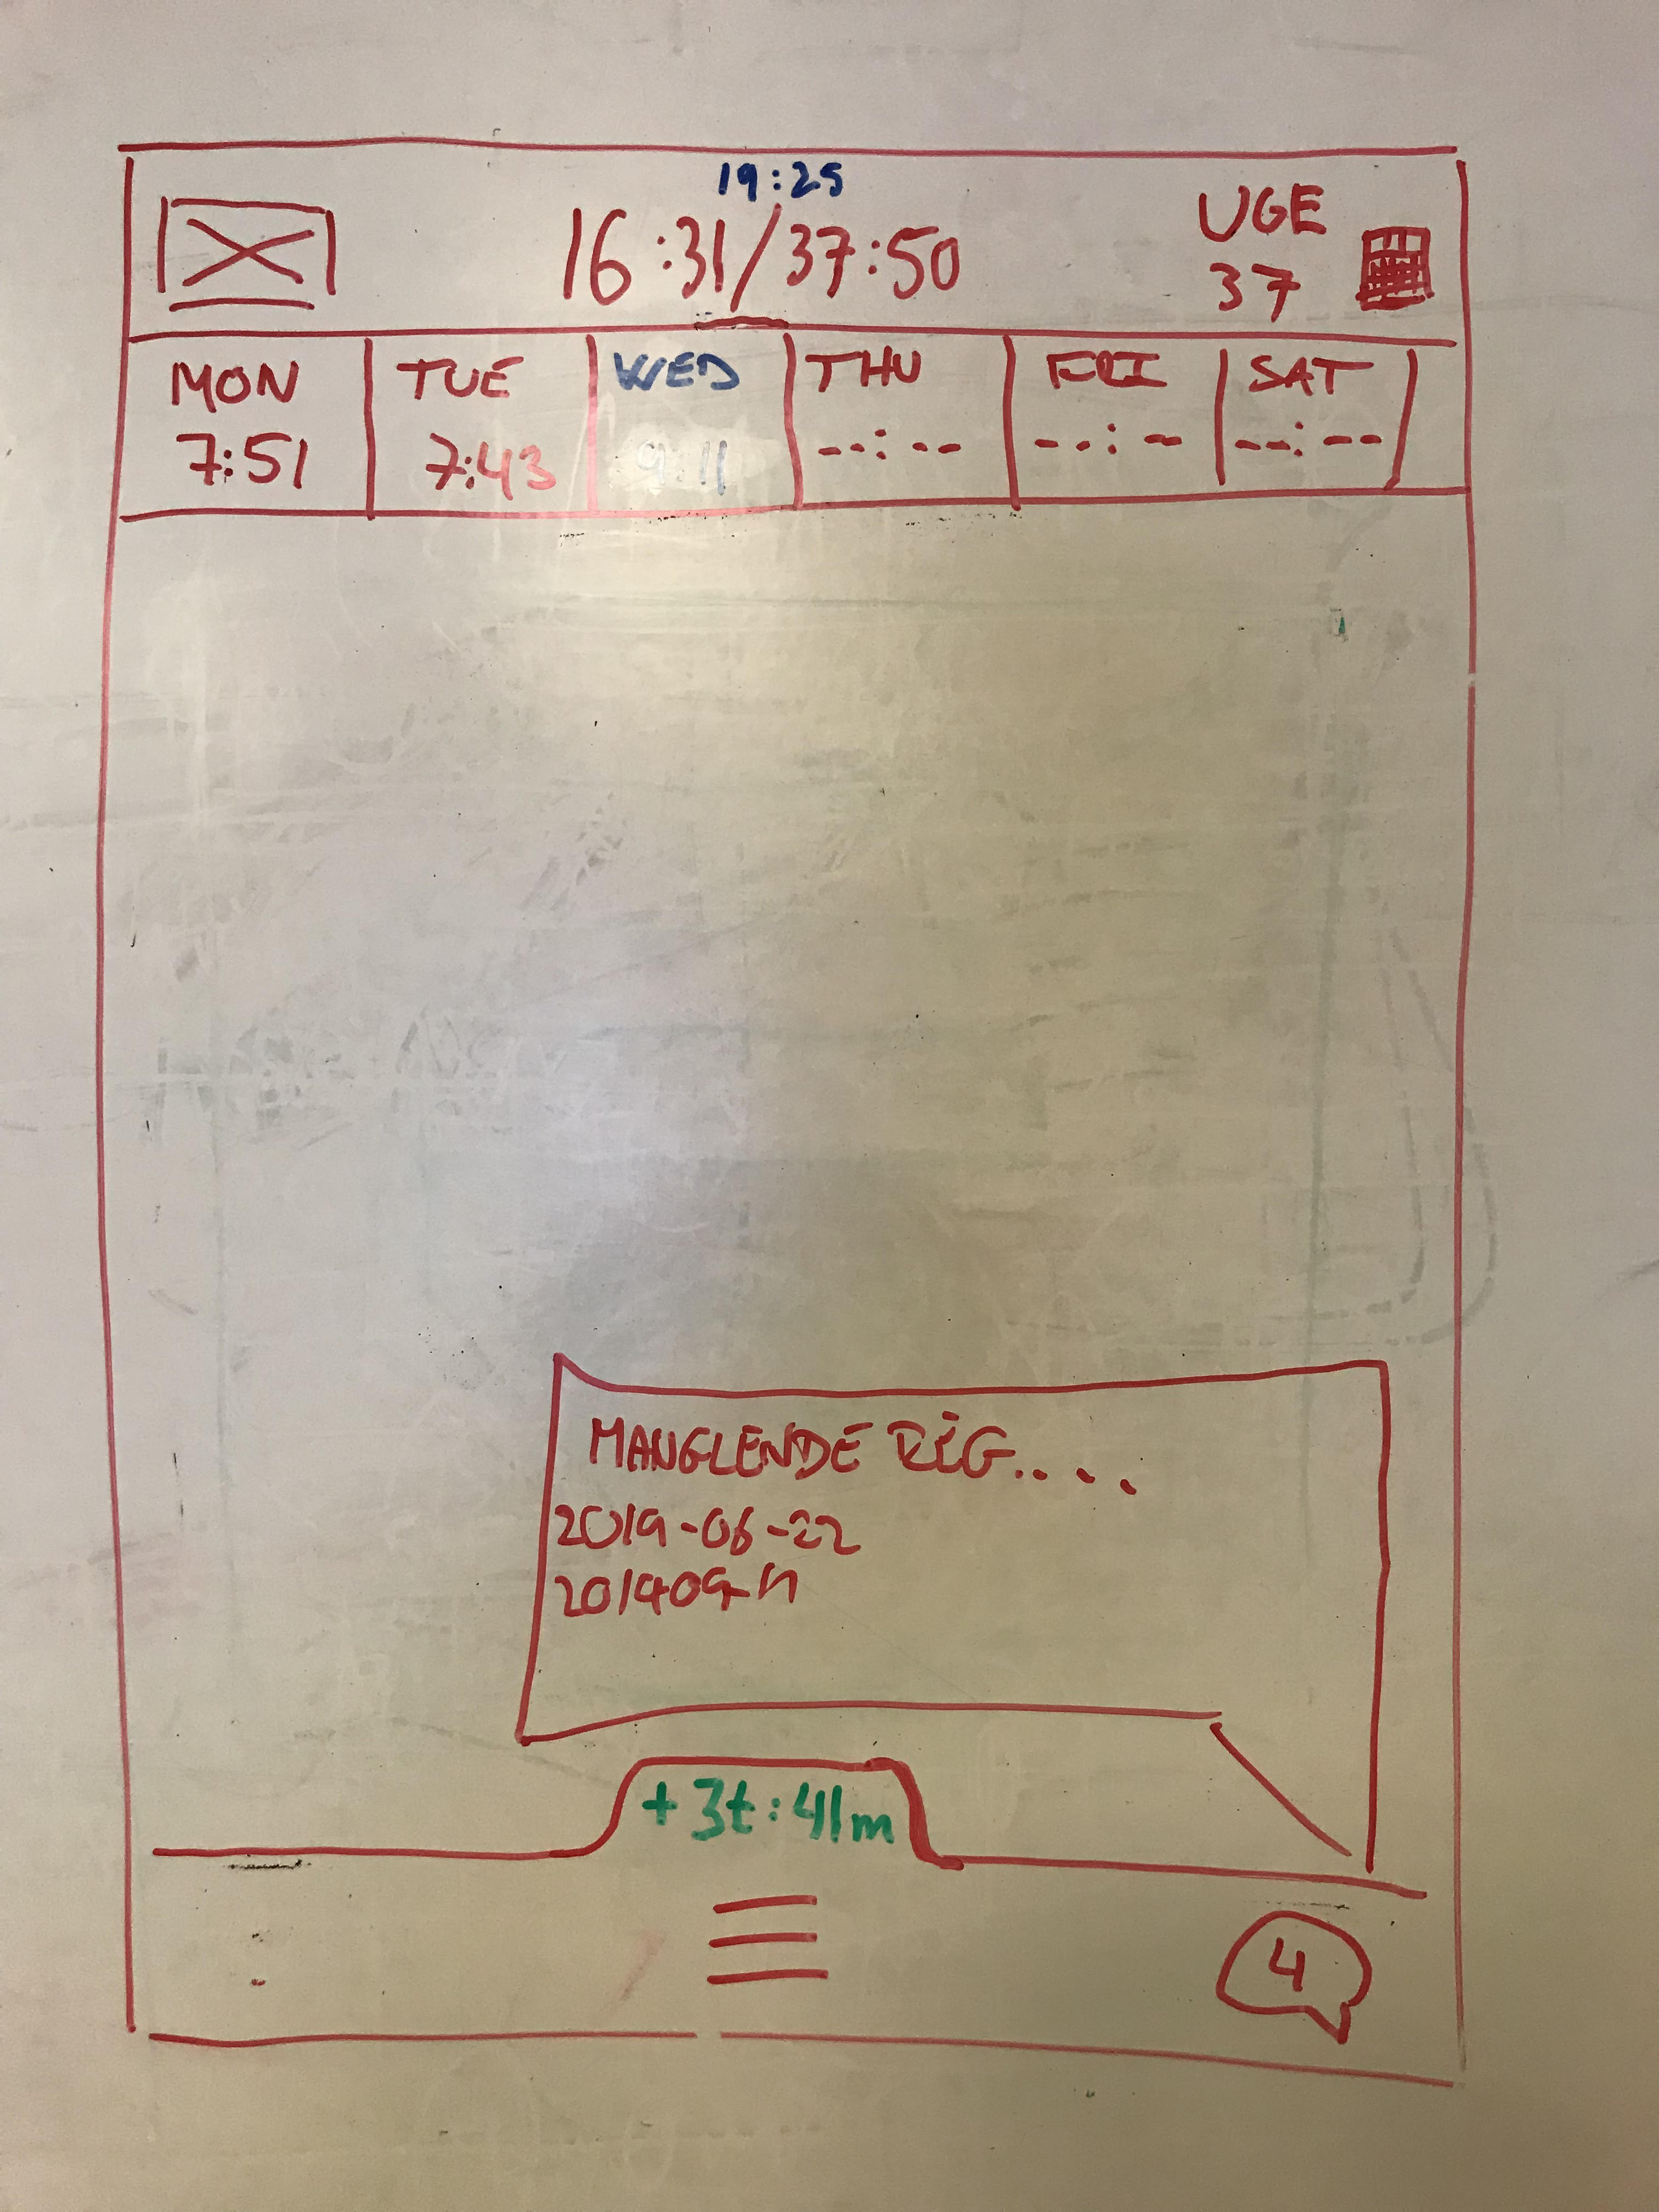 19:25
16:31/37:50
UGE
37
MON
TUE
WED
THU
FRI
SAT
7:51
7:43
9:11
--:--
--:--
--:--
MANGLENDE REG....
2019-06-22
+3t:41m
4